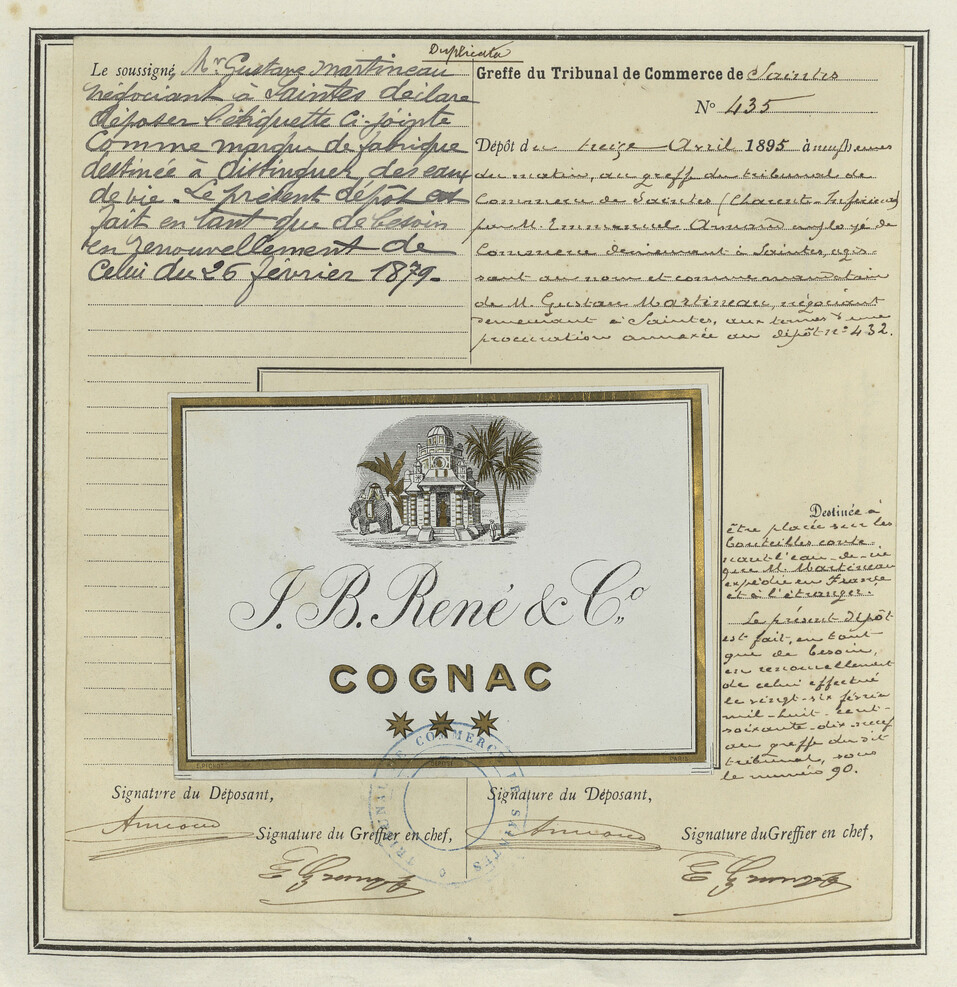 Duplicata
Le soussigné Mr Gustave Martineau
négociant à Saintes déclare
déposer l'étiquette ci-jointe
comme marque de fabrique
destinée à distinguer des eaux
de vie. Le présent dépôt est
fait en tant que de besoin
en renouvellement de
celui du 26 février 1879.
Greffe du Tribunal de Commerce de Saintes
N° 435
Dépôt du treize Avril 1895 à neuf heures
du matin, au greffe du tribunal de
Commerce de Saintes (Charente-Inférieure)
par M. Emmanuel Arnaud employé de
Commerce demeurant à Saintes, agis-
sant au nom et comme mandataire
de M. Gustave Martineau, négociant
demeurant à Saintes, aux termes d'une
procuration annexée au dépôt n° 432.
J. B. René & Co
COGNAC
PARIS
Destinée à
être placée sur les
bouteilles conte-
nant l'eau-de-vie
que M. Martineau
expédie en France
et à l'étranger.
Le présent dépôt
est fait, en tant
que de besoin,
en renouvellement
de celui effectué
le vingt-six février
mil-huit-cent-
soixante-dix-neuf
au greffe du dit
tribunal, sous
le numéro 90.
TRIBUNAL DE COMMERCE DE SAINTES
Signature du Déposant,
Signature du Greffier en chef,
Signature du Déposant,
Signature du Greffier en chef,